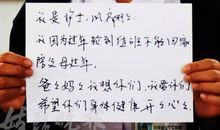 我是护士,
我因为过年轮到值班不能回家
陪父母过年.
爸爸妈妈我想你们,我爱你们
希望你们身体健康 开开心心.